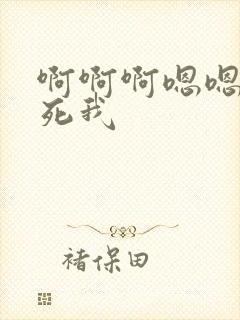 啊啊啊嗯嗯
死我
褚保田